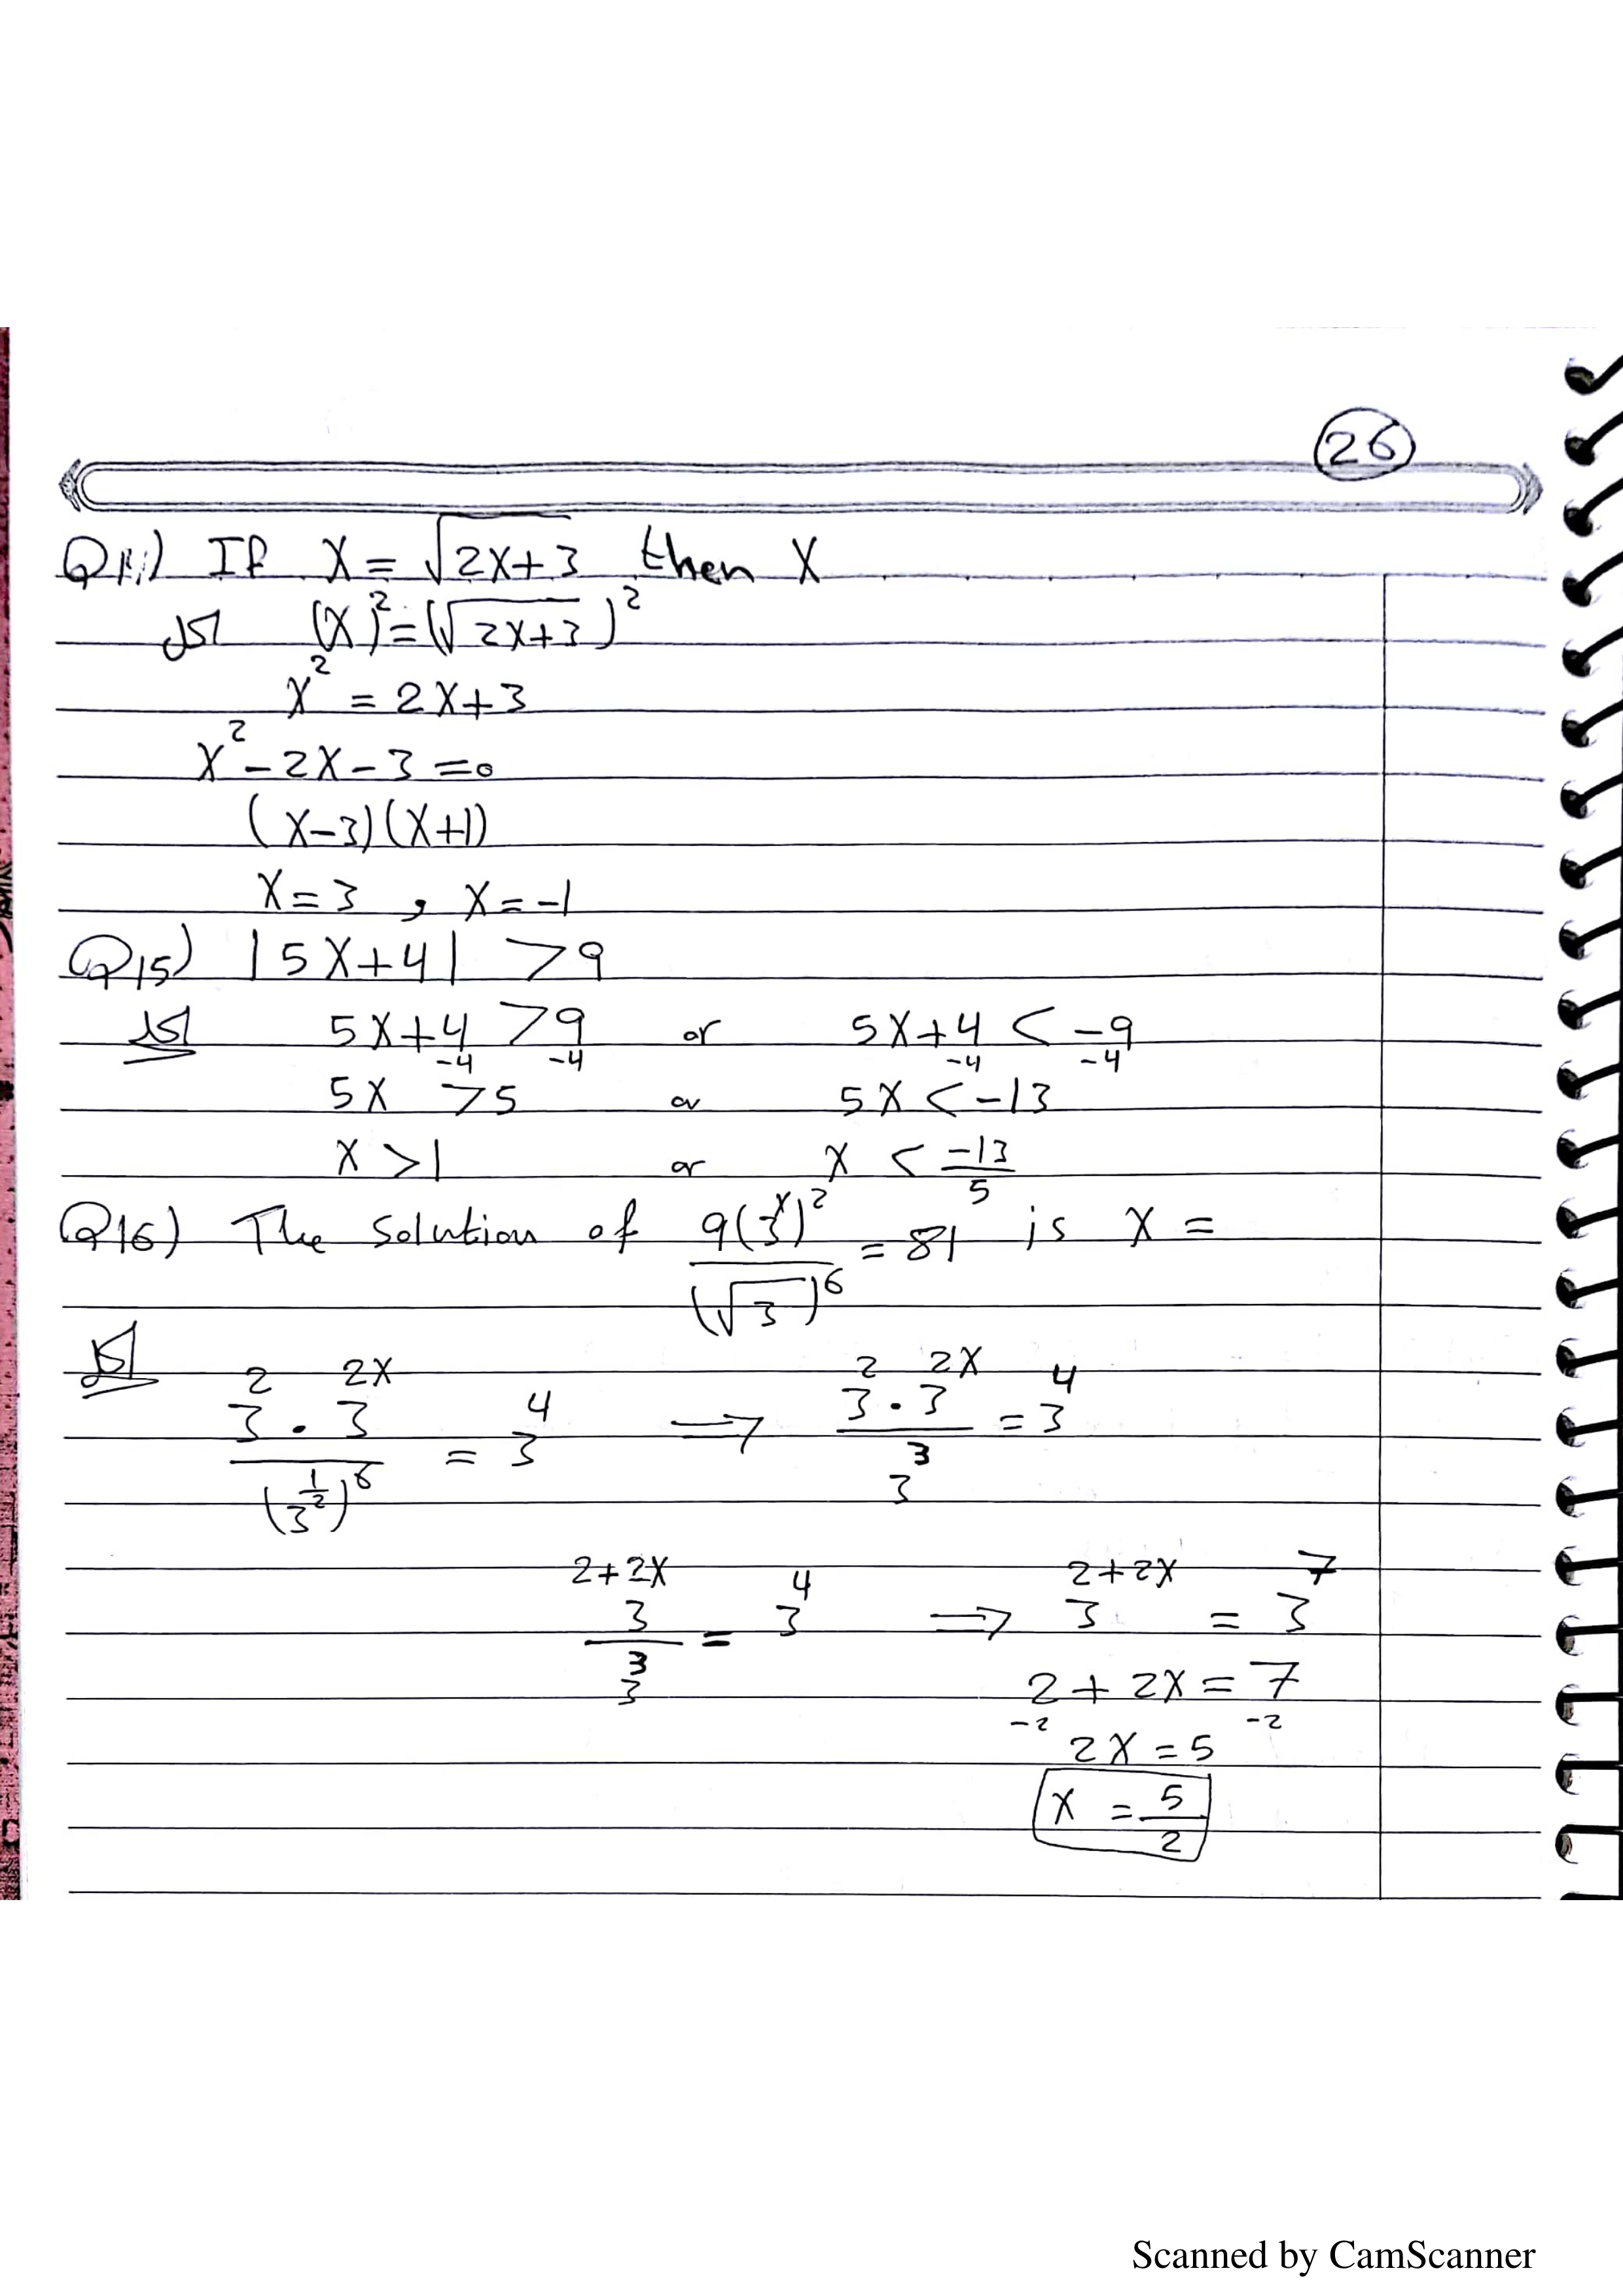 26
Q14) If X = √(2X+3) then X
الحل (X)² = (√(2X+3))²
X² = 2X+3
X² - 2X - 3 = 0
(X-3)(X+1)
X = 3 , X = -1
Q15) |5X+4| > 9
الحل 5X+4 > 9 or 5X+4 < -9
-4 -4 -4 -4
5X > 5 or 5X < -13
X > 1 or X < -13/5
Q16) The solution of 9(3ˣ)²/(√3)⁶ = 81 is X =
الحل
3² · 3²ˣ/(3^(1/2))⁶ = 3⁴ ⟹ 3² · 3²ˣ/3³ = 3⁴
3²⁺²ˣ/3³ = 3⁴ ⟹ 3²⁺²ˣ = 3⁷
2 + 2X = 7
-2 -2
2X = 5
X = 5/2
Scanned by CamScanner